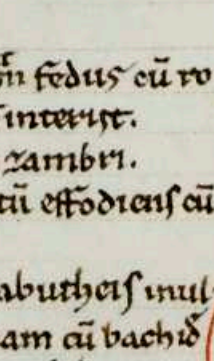 fedus cū ro
interiit.
zambri.
tū effodiens cū
abutheis mul
am cū bachid